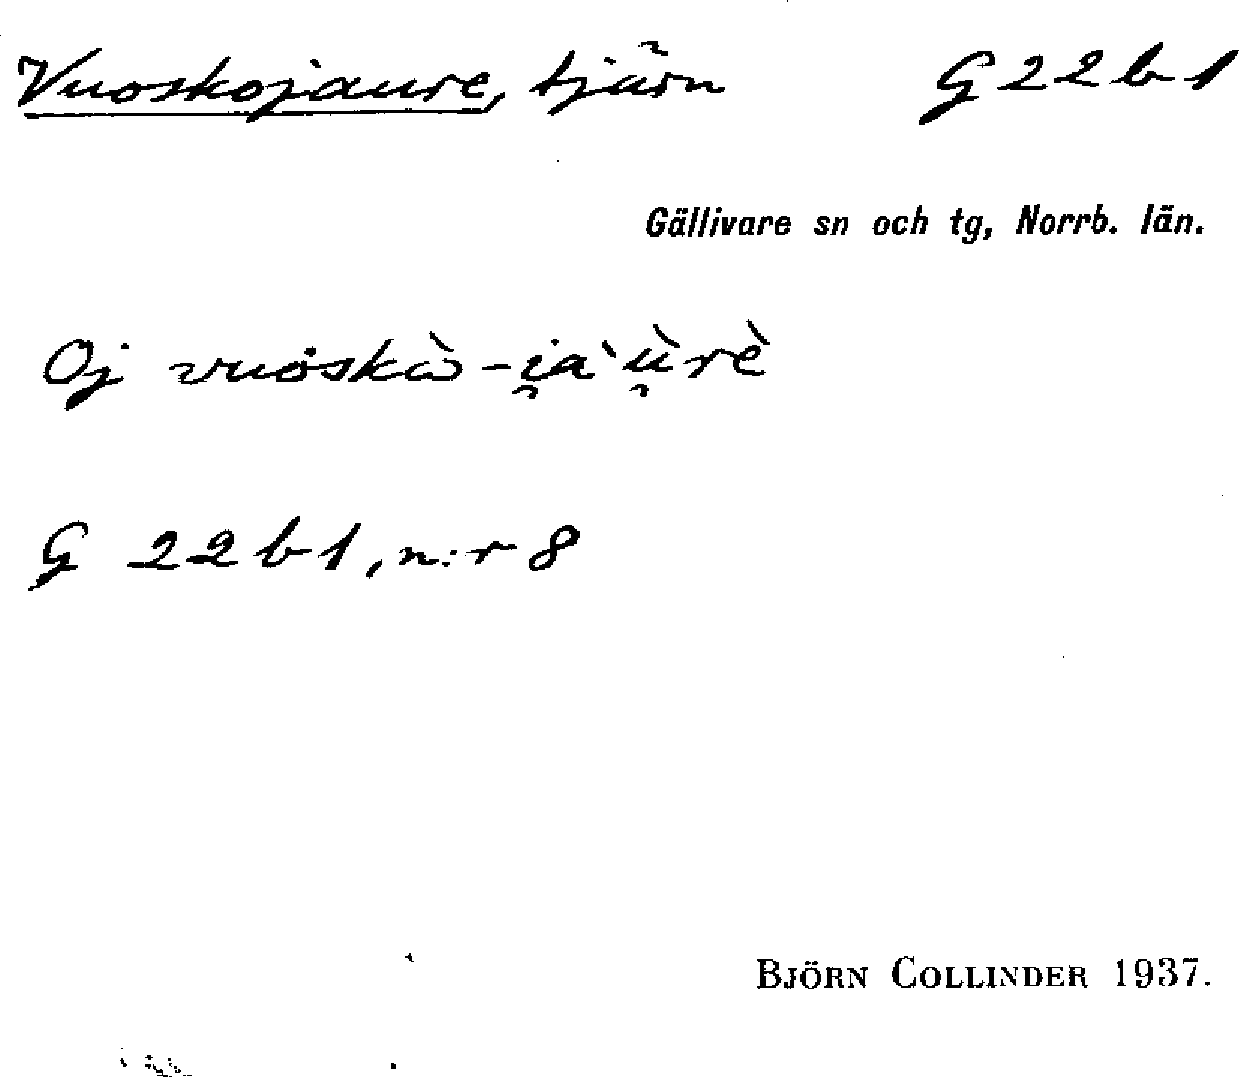 Vuoskojaure, tjärn G22b1
Gällivare sn och tg, Norrb. län.
Oj vuȯskὼ-i̯aˋù̯rè
G 22b1, n:r 8
BJÖRN COLLINDER 1937.